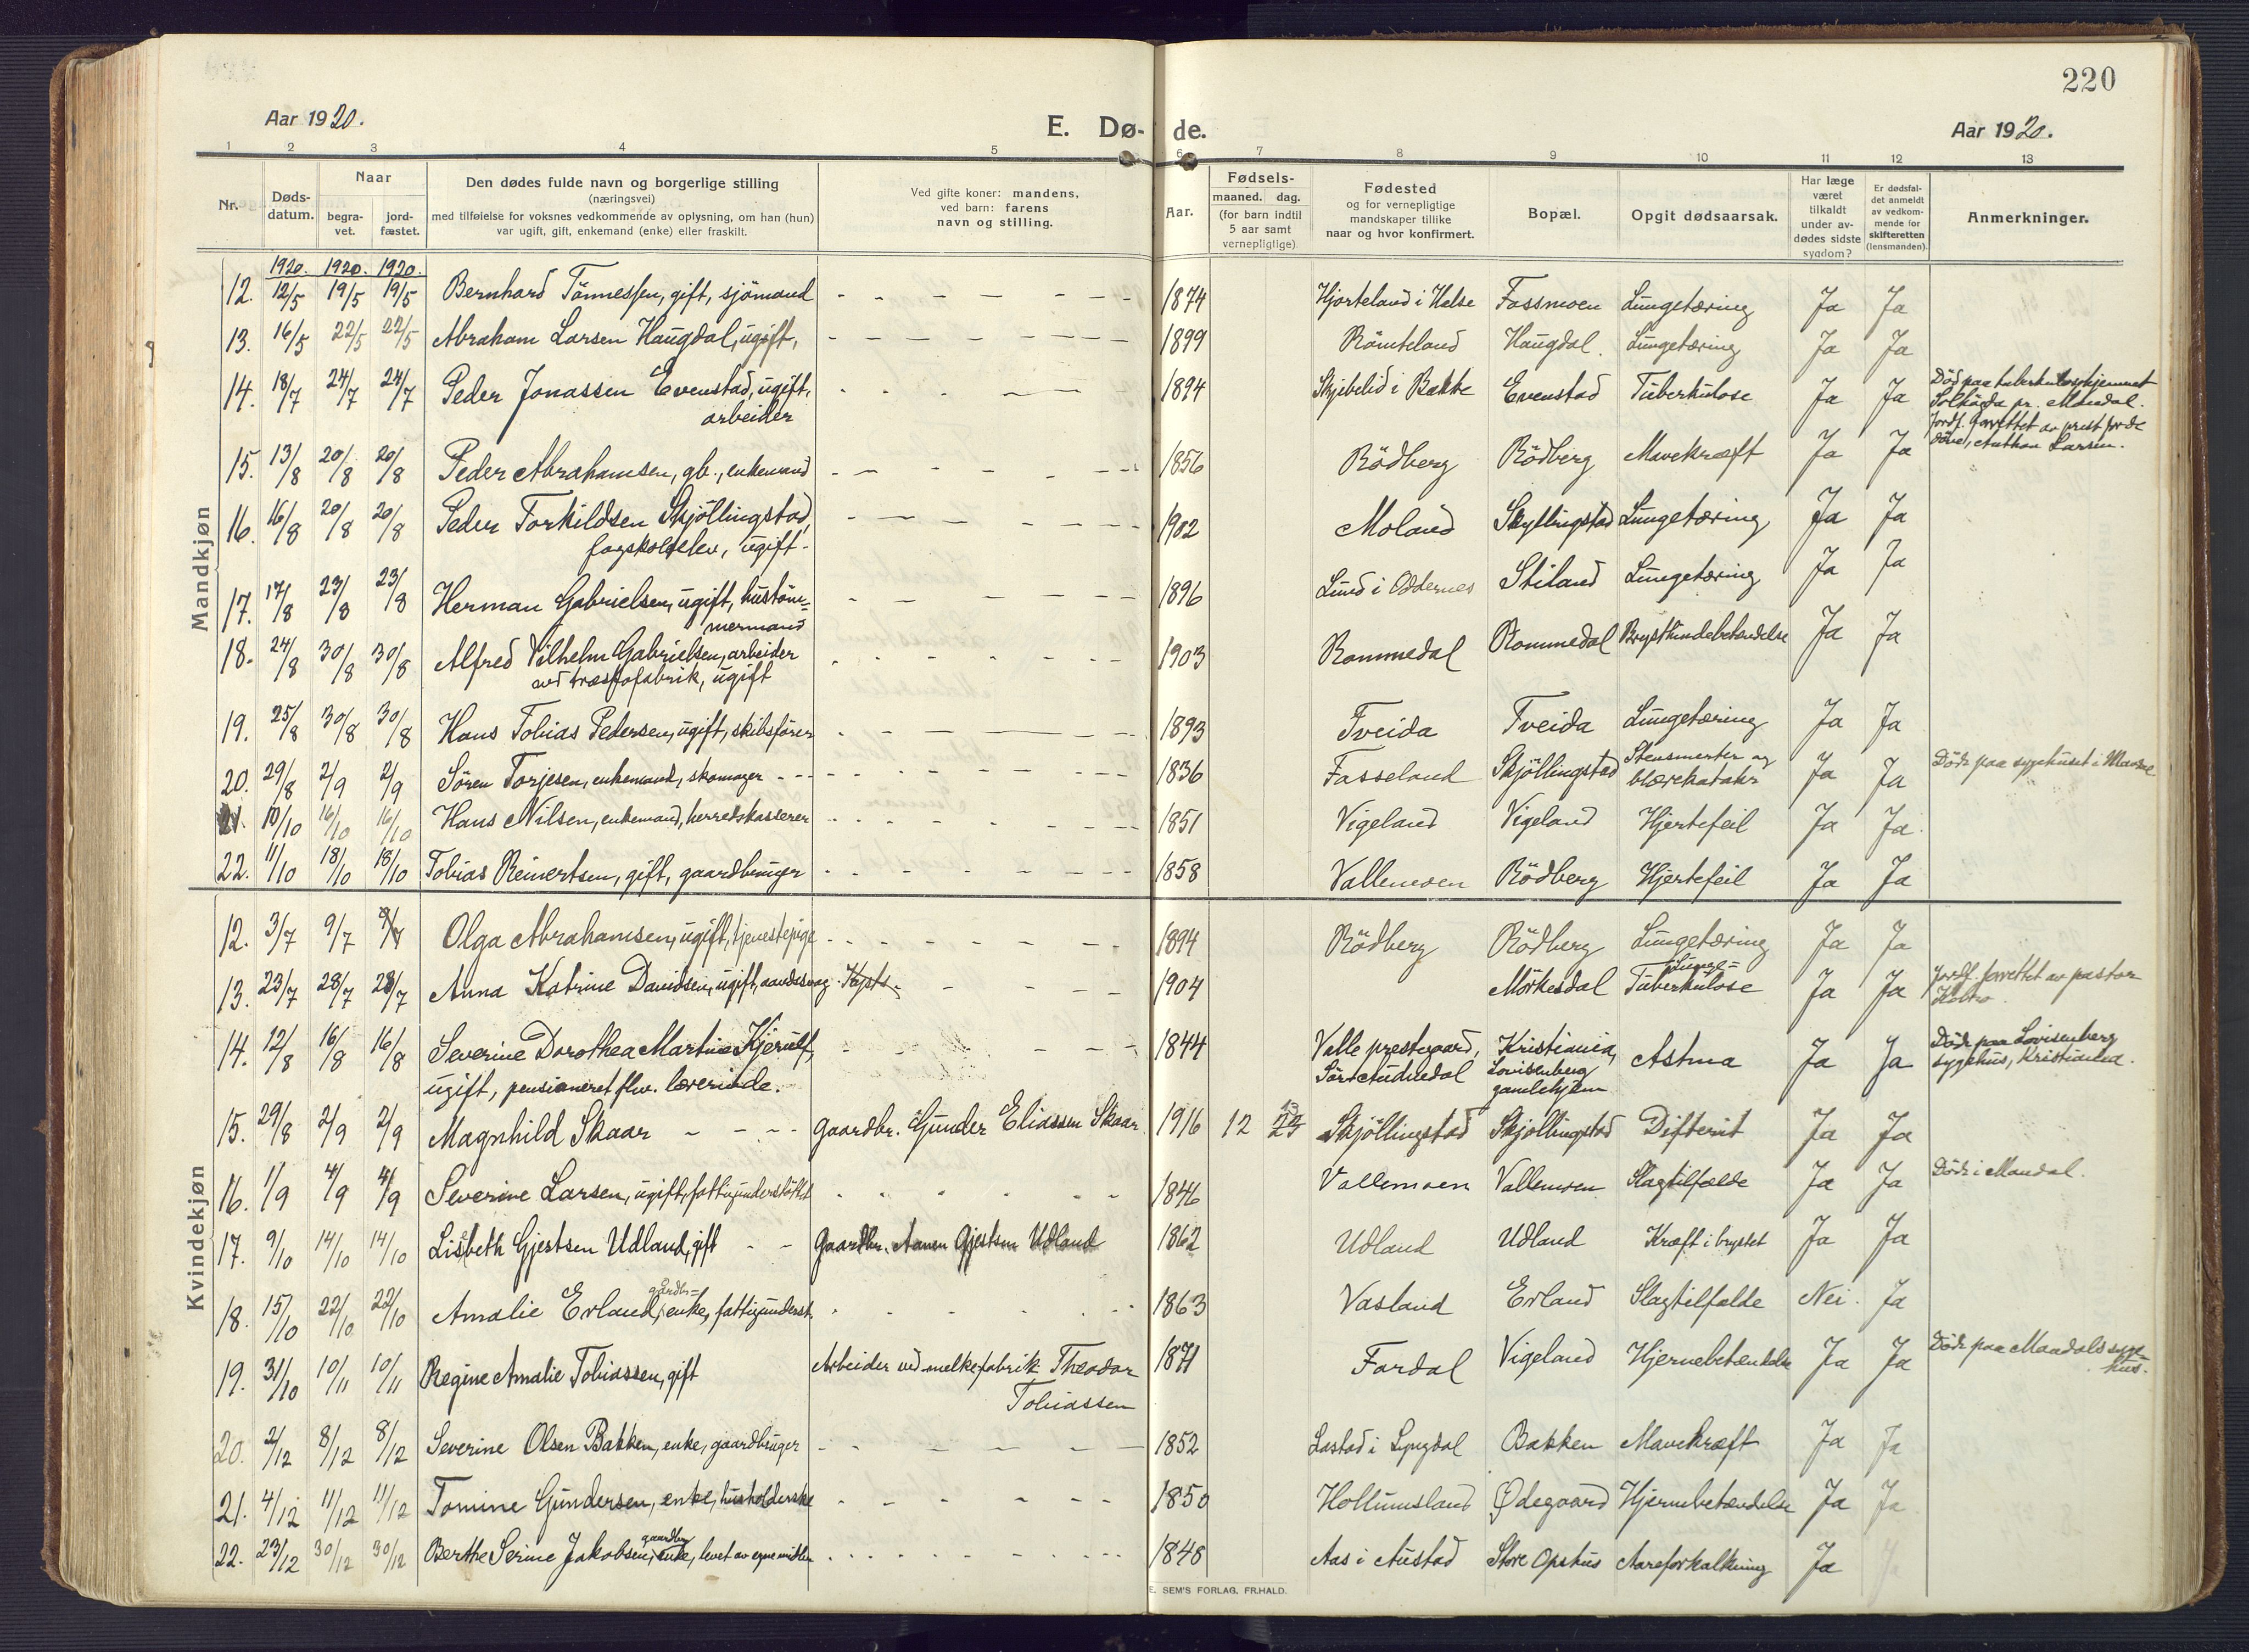 220
Aar 1920.
E. Dø-
de.
Aar 1920.
1 2 3 4 5 6 7 8 9 10 11 12 13
Nr.
Døds-
datum.
Naar
begra-
vet.
jord-
fæstet.
Den dødes fulde navn og borgerlige stilling
(næringsvei)
med tilføielse for voksnes vedkommende av oplysning, om han (hun)
var ugift, gift, enkemand (enke) eller fraskilt.
Ved gifte koner: mandens,
ved barn: farens
navn og stilling.
Aar.
Fødsels-
maaned. dag.
(for barn indtil
5 aar samt
vernepligtige)
Fødested
og for vernepligtige
mandskaper tillike
naar og hvor konfirmert.
Bopæl.
Opgit dødsaarsak.
Har læge
været
tilkaldt
under av-
dødes sidste
sygdom?
Er dødsfal-
det anmeldt
av vedkom-
mende for
skifteretten
(lensmanden).
Anmerkninger.
Mandkjøn
1920. 1920. 1920.
12. 12/5 19/5 19/5 Bernhard Tönnessen, gift, sjömand 1874 Hjorteland i Halse Fossmoen Lungetæring Ja Ja
13. 16/5 22/5 22/5 Abraham Larsen Haugdal, ugift, 1899 Römteland Haugdal. Lungetæring Ja Ja
14. 18/7 24/7 24/7 Peder Jonassen Evenstad, ugift, 1894 Skjebelid i Bakke Evenstad Tuberkulose Ja Ja Död paa tuberkulosehjemmet
arbeider Solhögda pr. Mandal.
Jordf. forrettet av prest for de
15. 13/8 20/8 20/8 Peder Abrahamsen, gb., enkemand 1856 Rödberg Rödberg Mavekræft Ja Ja döve, Anthon Larsen.
16. 16/8 20/8 20/8 Peder Torkildsen Skjöllingstad, 1902 Moland Skjöllingstad Lungetæring Ja Ja
fagskoleelev, ugift.
17. 17/8 23/8 23/8 Herman Gabrielsen, ugift, hustöm= 1896 Lund i Oddernes Stiland Lungetæring Ja Ja
mermand
18. 24/8 30/8 30/8 Alfred Vilhelm Gabrielsen, arbeider 1903 Rommedal Rommedal Brysthindebetændelse Ja Ja
ved træstofabrik, ugift
19. 25/8 30/8 30/8 Hans Tobias Pedersen, ugift, skibsförer 1893 Tveida Tveida Lungetæring Ja Ja
20. 29/8 2/9 2/9 Sören Torjesen, enkemand, skomager 1836 Fasseland Skjöllingstad Stensmerter og Ja Ja Döde paa sygehuset i Mandal
blærekatahr
21. 10/10 16/10 16/10 Hans Nilsen, enkemand, herredskasserer 1851 Vigeland Vigeland Hjertefeil Ja Ja.
22. 11/10 18/10 18/10 Tobias Reinertsen, gift, gaardbruger 1858 Vallemoen Rödberg Hjertefeil Ja Ja
Kvindekjøn
12. 3/7 9/7 9/7 Olga Abrahamsen, ugift, tjenestepige 1894 Rödberg Rödberg Lungetæring Ja Ja
Lunge=
13. 23/7 28/7 28/7 Anna Katrine Davidsen, ugift, aandssvag 1904 Mörkesdal Tuberkulose Ja Ja Jordf. forrettet av pastor
14. 12/8 16/8 16/8 Severine Dorothea Martine Kjerulf, 1844 Valle prestegaard, Kristiania, Astma Ja Ja Döde paa Lovisenberg
ugift, pensioneret fhv. lærerinde. Sör Audnedal Lovisenberg sygehus, Kristiania.
gamlehjem
15. 29/8 2/9 2/9 Magnhild Skaar Gaardbr. Gunder Eliassen Skaar 1916 12 23 Skjöllingstad Skjöllingstad Difterit Ja Ja
16. 1/9 4/9 4/9 Severine Larsen, ugift, fattigunderstöttet 1846 Vallemoen Vallemoen Slagtilfælde Ja Ja Döde i Mandal.
17. 9/10 14/10 14/10 Lisbeth Gjertsen Udland, gift Gaardbr. Aanen Gjertsen Udland 1862 Udland Udland Kræft i brystet Ja Ja
gårdbr=
18. 15/10 22/10 22/10 Amalie Erland, enke, fattigunderst. 1863 Vasland Erland Slagtilfælde Nei. Ja
19. 31/10 10/11 10/11 Regine Amalie Tobiassen, gift Arbeider ved melkefabrik Theodor 1871 Fardal Vigeland Hjernebetændelse Ja Ja Döde paa Mandals syge-
Tobiassen hus.
20. 2/12 8/12 8/12 Severine Olsen Bakken, enke, gaardbruger 1852 Lastad i Lyngdal Bakken Mavekræft Ja Ja
21. 4/12 11/12 11/12 Tomine Gundersen, enke, husholderske 1850 Hollumsland Ødegaard Hjernebetændelse Ja Ja
gaardbr
22. 23/12 30/12 30/12 Berthe Serine Jakobsen, enke, levet av egne midler 1848 Aas i Austad Store Opshus Aareforkalkning Ja
E. SEM'S FORLAG, FR.HALD.